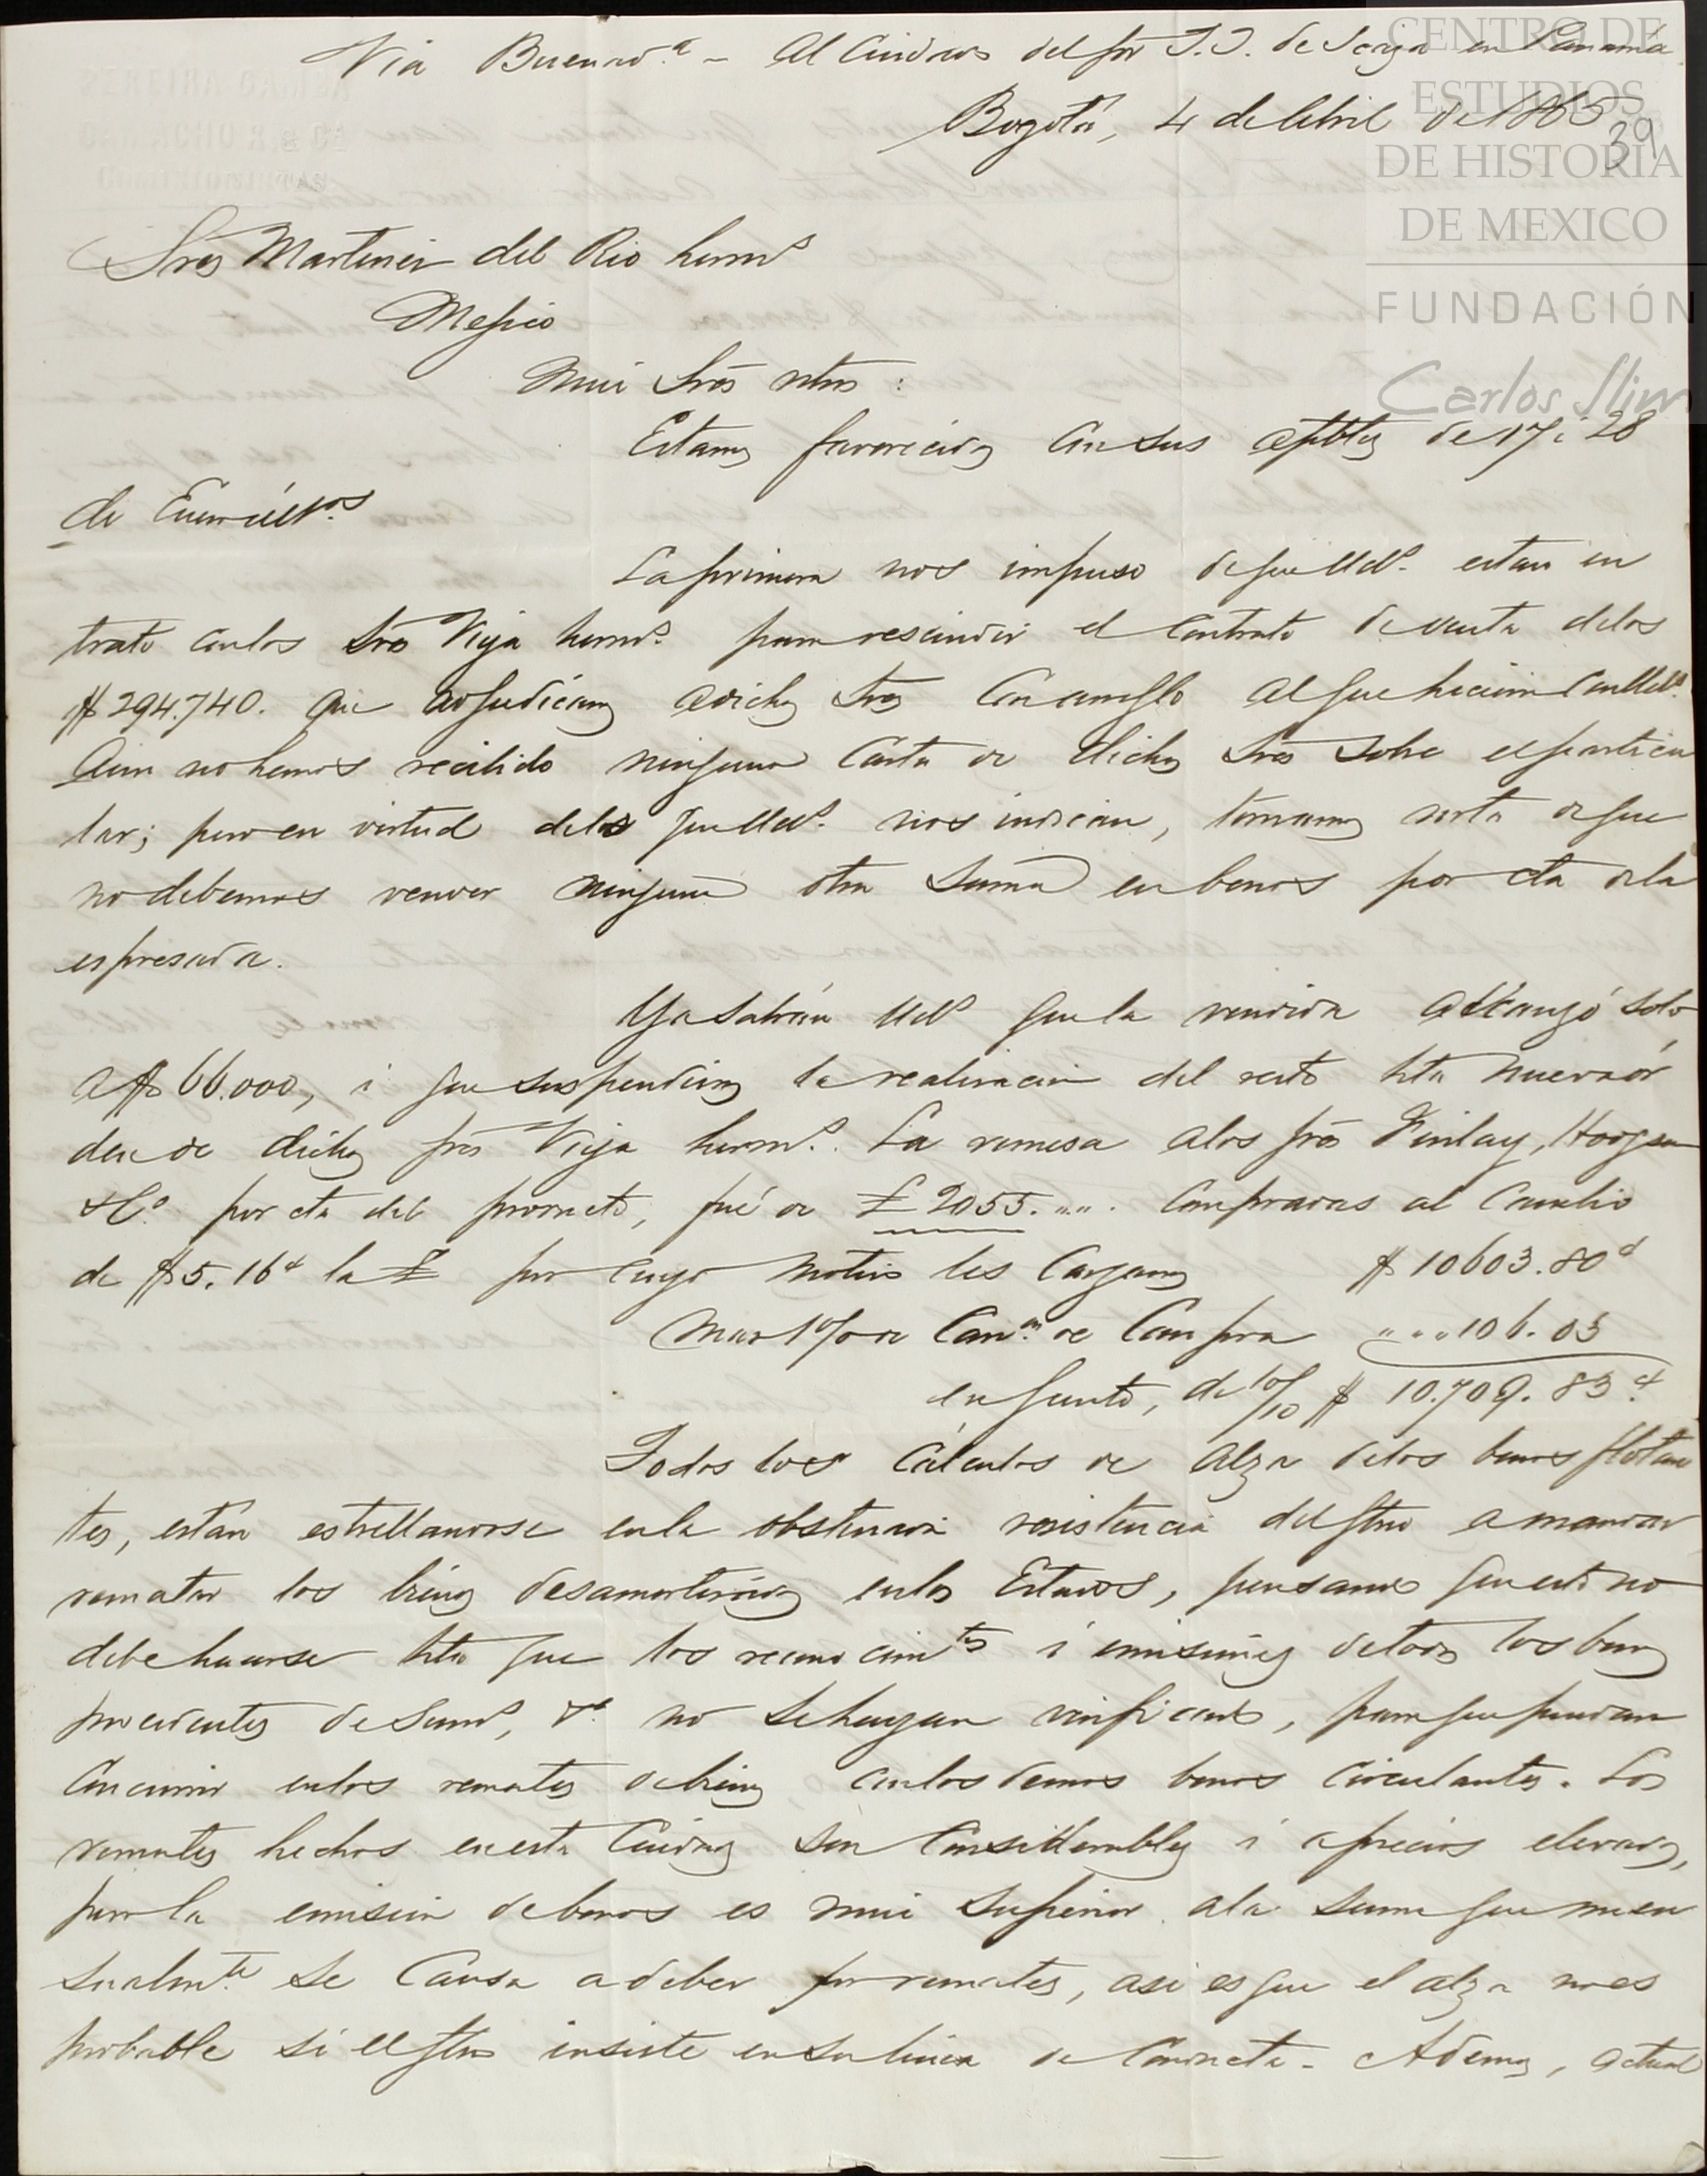 Via Buenav.a - Al cuidado del Sr J. J. de Icaza en Panamá
Bogotá, 4 de Abril de 1865
39
CENTRO DE
ESTUDIOS
DE HISTORIA
DE MEXICO
FUNDACIÓN
Carlos Slim
Sres Martinez del Rio herms
Mejico
Mui Srēs ntros :
Estamos favorecidos con sus aptbles de 17 i 28
de Enero últos.
La primera nos impuso de que Uds. estan en
trato con los Srēs Vieja herms. para rescindir el contrato de venta de los
$ 294.740. que adjudicamos a dichos Sres con arreglo al que hicimos con Uds.
Aun no hemos recibido ninguna carta de dichos Srēs sobre el particu
lar; pero en virtud de lo que Uds. nos indican, tomamos nota de que
no debemos vender ninguna otra suma en bonos por cta de la
espresada.
Ya sabrán Uds que la vendida alcanzó solo
a $ 66.000, i que suspendimos la realizacion del resto hta nueva ór
den de dichos Srēs Vieja herms. La remesa a los Srēs Finlay, Hodgson
& Co. por cta del producto, fué de £ 2055. „„. compradas al cambio
de $5. 16 cs la £ por cuyo motivo les cargamos $ 10603.80 cs
mas 1% de Comon de compra „ „ „ 106. 03
en junto, de 10/10 $ 10.709. 83 cs.
Todos los cálculos de alza de los bonos flotan
tes, están estrellandose en la obstinada resistencia del Gno a mandar
rematar los bienes desamortizados en los Estados, pensando que esto no
debe hacerse hta que los reconocimtos i emisiones de todos los bonos
procedentes de Sumos, &a. no se hayan verificado, para que puedan
concurrir en los remates de bienes con los demas bonos circulantes. Los
remates hechos en esta Ciudad son considerables i a precios elevados,
pero la emision de bonos es mui superior a la suma que men
sualmte. se causa a deber por remates, asi es que el alza no es
probable si el Gno insiste en su linea de conducta. Ademas, actual